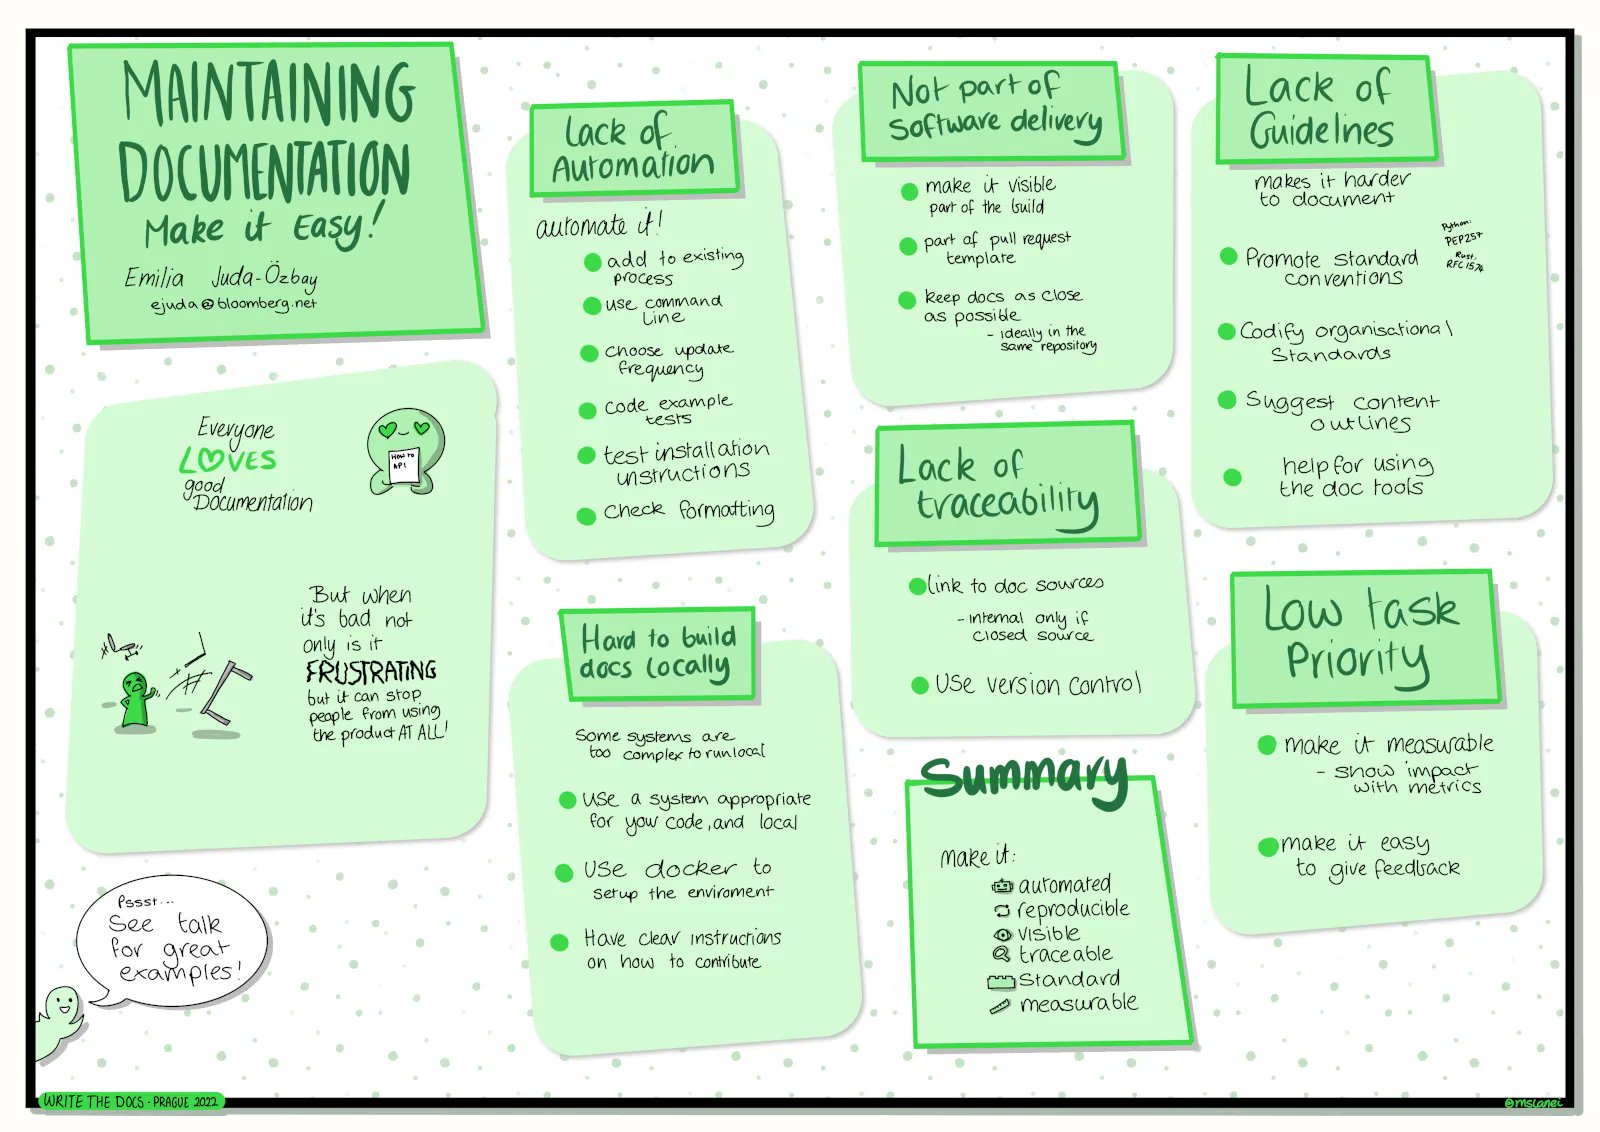 MAINTAINING
DOCUMENTATION
Make it Easy!
Emilia Juda-Özbay
ejuda@bloomberg.net
Everyone
LOVES
good
Documentation
How to
API
But when
it's bad not
only is it
FRUSTRATING
but it can stop
people from using
the product AT ALL!
Pssst...
See talk
for great
examples!
Lack of
Automation
automate it!
add to existing
process
use command
Line
choose update
frequency
code example
tests
test installation
instructions
check formatting
Hard to build
docs locally
Some systems are
too complex to run local
Use a system appropriate
for your code, and local
Use docker to
setup the enviroment
Have clear instructions
on how to contribute
Not part of
Software delivery
make it visible
part of the build
part of pull request
template
keep docs as close
as possible
- ideally in the
same repository
Lack of
traceability
link to doc sources
- internal only if
closed source
Use version control
Summary
make it:
automated
reproducible
visible
traceable
Standard
measurable
Lack of
Guidelines
makes it harder
to document
Promote standard
conventions
Python:
PEP257
Rust:
RFC1574
Codify organisational
Standards
Suggest content
outlines
help for using
the doc tools
Low task
Priority
make it measurable
- show impact
with metrics
make it easy
to give feedback
WRITE THE DOCS · PRAGUE 2022
@mslanei